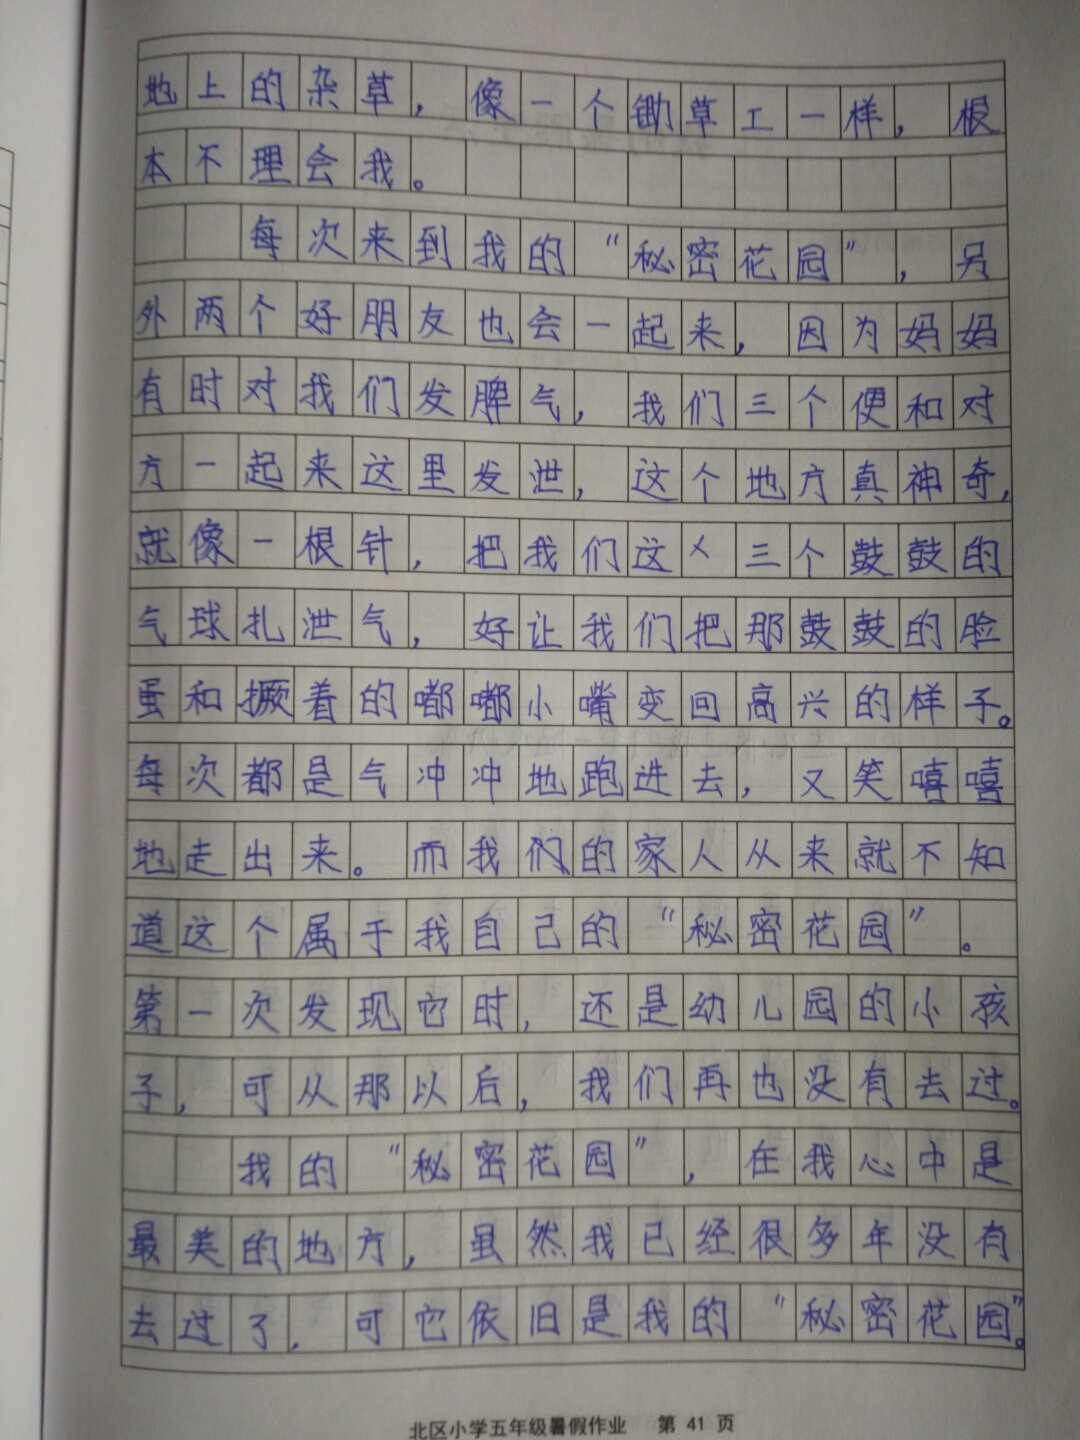 地上的杂草，像一个锄草工一样，根
本不理会我。
每次来到我的“秘密花园”，另
外两个好朋友也会一起来，因为妈妈
有时对我们发脾气，我们三个便和对
方一起来这里发泄，这个地方真神奇，
就像一根针，把我们这三个鼓鼓的
气球扎泄气，好让我们把那鼓鼓的脸
蛋和撅着的嘟嘟小嘴变回高兴的样子。
每次都是气冲冲地跑进去，又笑嘻嘻
地走出来。而我们的家人从来就不知
道这个属于我自己的“秘密花园”。
第一次发现它时，还是幼儿园的小孩
子，可从那以后，我们再也没有去过。
我的“秘密花园”，在我心中是
最美的地方，虽然我已经很多年没有
去过了，可它依旧是我的“秘密花园”。
北区小学五年级暑假作业 第 41 页